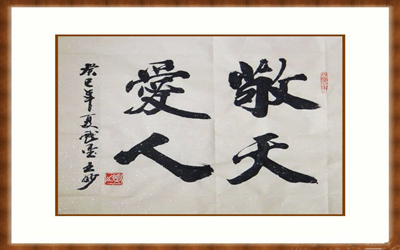 敬天
愛人
癸巳年夏